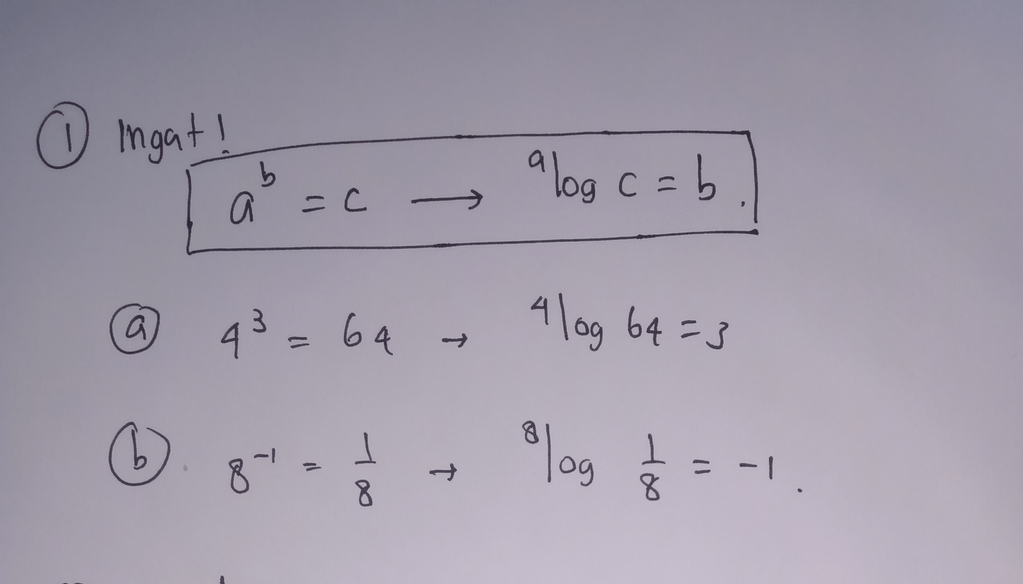 ① Ingat!
aᵇ = c → ᵃlog c = b.
ⓐ 4³ = 64 → ⁴log 64 = 3
ⓑ 8⁻¹ = 1/8 → ⁸log 1/8 = -1.